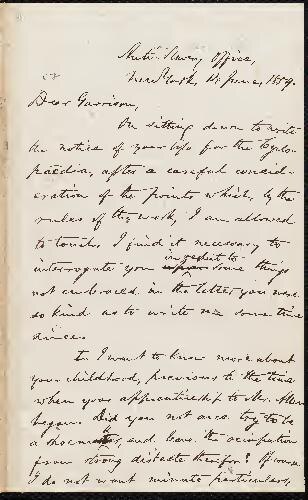 Anti-Slavery Office,
New York, 15 June, 1859.
Dear Garrison,
On sitting down to write
the notice of your life for the Cyclo-
paedia, after a careful consid-
eration of the points which, by the
rules of the work, I am allowed
to touch, I find it necessary to
interrogate you in regard to some things
not embraced in the letter you were
so kind as to write me some time
since.
1. I want to know more about
your childhood, previous to the time
when your apprenticeship to Mr. Allen
began. Did you not once try to be
a shoemaker, and leave the occupation
from strong distaste therefor? Of course
I do not want minute particulars,